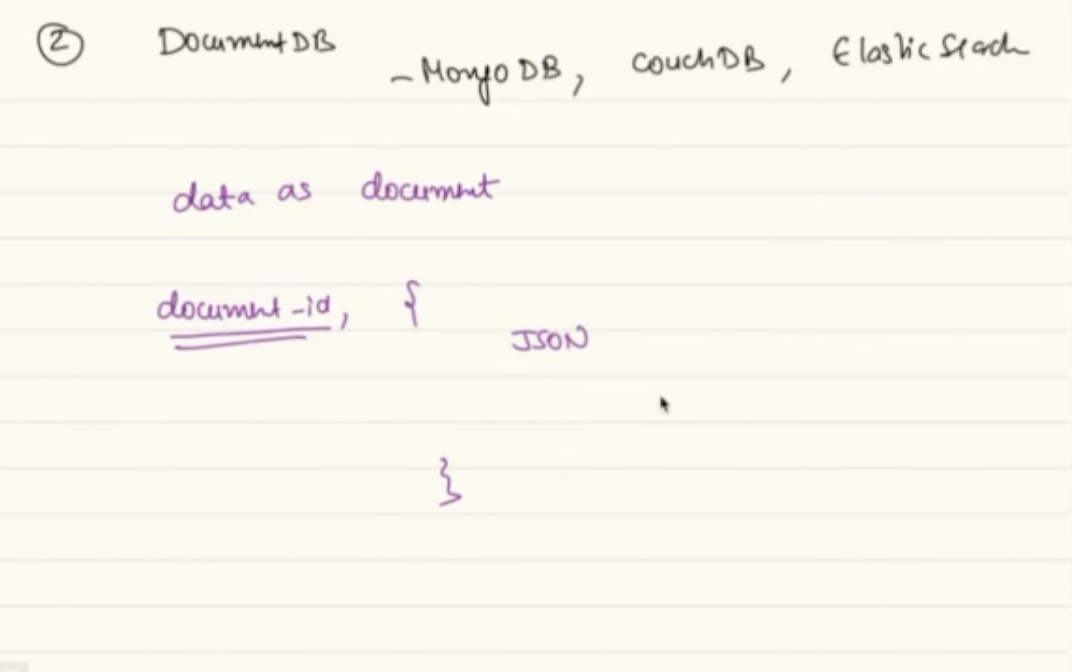 ② DocumentDB
- MongoDB, couchDB, Elastic Search
data as document
document-id, {
JSON
}